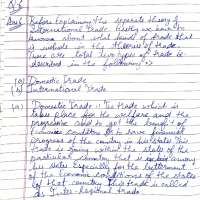 Q.6
Ans 6 Before explaining the separate theory of
International Trade firstly we want to
about what kinds of trade that
is include in the theories of trade.
There are total two types of trade is
described in the following :-
(a) Domestic Trade
(b) International Trade
(a) Domestic Trade :- The trade which is
takes place for the welfare and the
progressive and to get the benefit of
economic condition to have financial
progress of the country is this
trade is going within the state of the
particular country that is among
his state especially for the betterment
of the economic conditions of the states
of that country. This trade is called
as Inter-Regional trade.